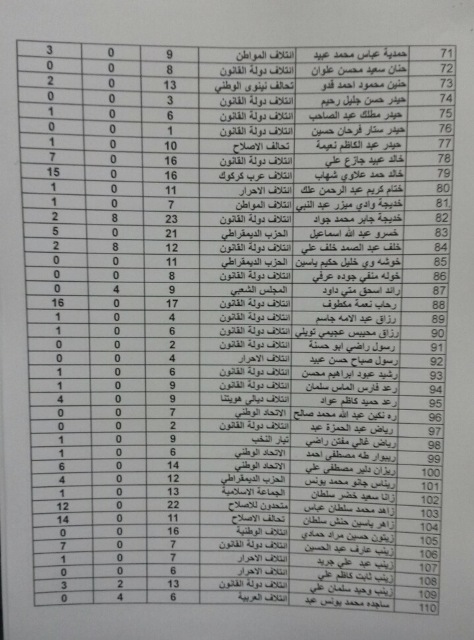 71 حمدية عباس محمد عبيد ائتلاف المواطن 9 0 3
72 حنان سعيد محسن علوان ائتلاف دولة القانون 8 0 0
73 حنين محمود احمد قدو تحالف نينوى الوطني 13 0 2
74 حيدر حسن جليل رحيم ائتلاف دولة القانون 3 0 0
75 حيدر مطلك عبد الصاحب ائتلاف دولة القانون 6 0 1
76 حيدر ستار فرحان حسين ائتلاف دولة القانون 1 0 0
77 حيدر عبد الكاظم نعيمة تحالف الاصلاح 10 0 1
78 خالد عبيد جازع علي ائتلاف دولة القانون 16 0 7
79 خالد حمد علاوي شهاب ائتلاف عرب كركوك 16 0 15
80 ختام كريم عبد الرحمن علك ائتلاف الاحرار 11 0 1
81 خديجة وادي ميزر عبد النبي ائتلاف المواطن 7 0 1
82 خديجة جابر محمد جواد ائتلاف دولة القانون 23 8 2
83 خسرو عبد الله اسماعيل الحزب الديمقراطي 21 0 5
84 خلف عبد الصمد خلف علي ائتلاف دولة القانون 12 8 2
85 خوشه وي خليل حكيم ياسين الحزب الديمقراطي 11 0 0
86 خوله منفي جوده عرفي ائتلاف دولة القانون 8 0 0
87 رائد اسحق متي داود المجلس الشعبي 9 4 0
88 رحاب نعمة مكطوف ائتلاف دولة القانون 17 0 16
89 رزاق عبد الامه جاسم ائتلاف دولة القانون 4 0 1
90 رزاق محيبس عجيمي تويلي ائتلاف دولة القانون 6 0 1
91 رسول راضي ابو حسنة ائتلاف دولة القانون 2 0 0
92 رسول صباح حسن عبيد ائتلاف الاحرار 4 0 0
93 رشيد عبود ابراهيم محسن ائتلاف دولة القانون 6 0 1
94 رعد فارس الماس سلمان ائتلاف دولة القانون 9 0 1
95 رعد حميد كاظم عواد ائتلاف ديالى هويتنا 9 0 4
96 ره نكين عبد الله محمد صالح الاتحاد الوطني 7 0 0
97 رياض عبد الحمزة عبد ائتلاف دولة القانون 2 0 0
98 رياض غالي مفتن راضي تيار النخب 9 0 1
99 ريبوار طه مصطفى احمد الاتحاد الوطني 6 0 1
100 ريزان دلير مصطفى علي الاتحاد الوطني 14 0 6
101 ريناس جانو محمد يونس الحزب الديمقراطي 12 0 4
102 زانا سعيد خضر سلطان الجماعة الاسلامية 13 0 1
103 زاهد محمد سلطان عباس متحدون للاصلاح 22 0 12
104 زاهر ياسين حنش سلطان تحالف الاصلاح 11 0 14
105 زيتون حسين مراد حمادي ائتلاف الوطنية 16 0 0
106 زينب عارف عبد الحسين ائتلاف دولة القانون 7 0 7
107 زينب عبد علي جريد ائتلاف الاحرار 7 0 1
108 زينب ثابت كاظم علي ائتلاف الاحرار 6 0 0
109 زينب وحيد سلمان علي ائتلاف دولة القانون 13 2 3
110 ساجده محمد يونس عبد ائتلاف العربية 6 4 0